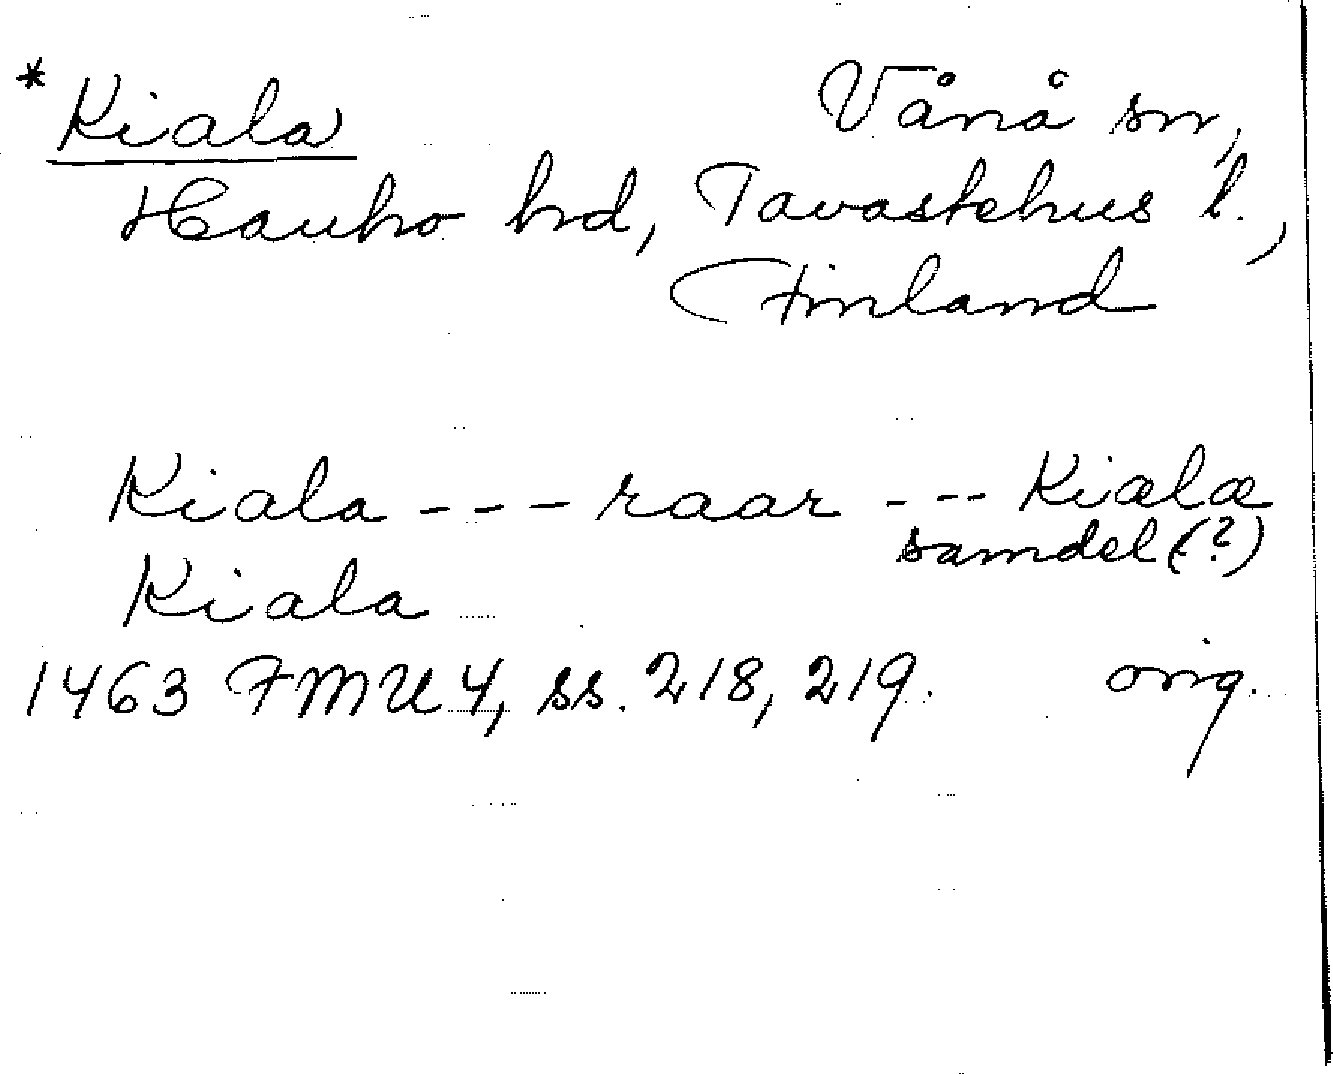 * Kiala Vånå sn,
Hauho hd, Tavastehus l.,
Finland
Kiala --- raar --- Kialæ
samdel (?)
Kiala
1463 FMU 4, ss. 218, 219. orig.